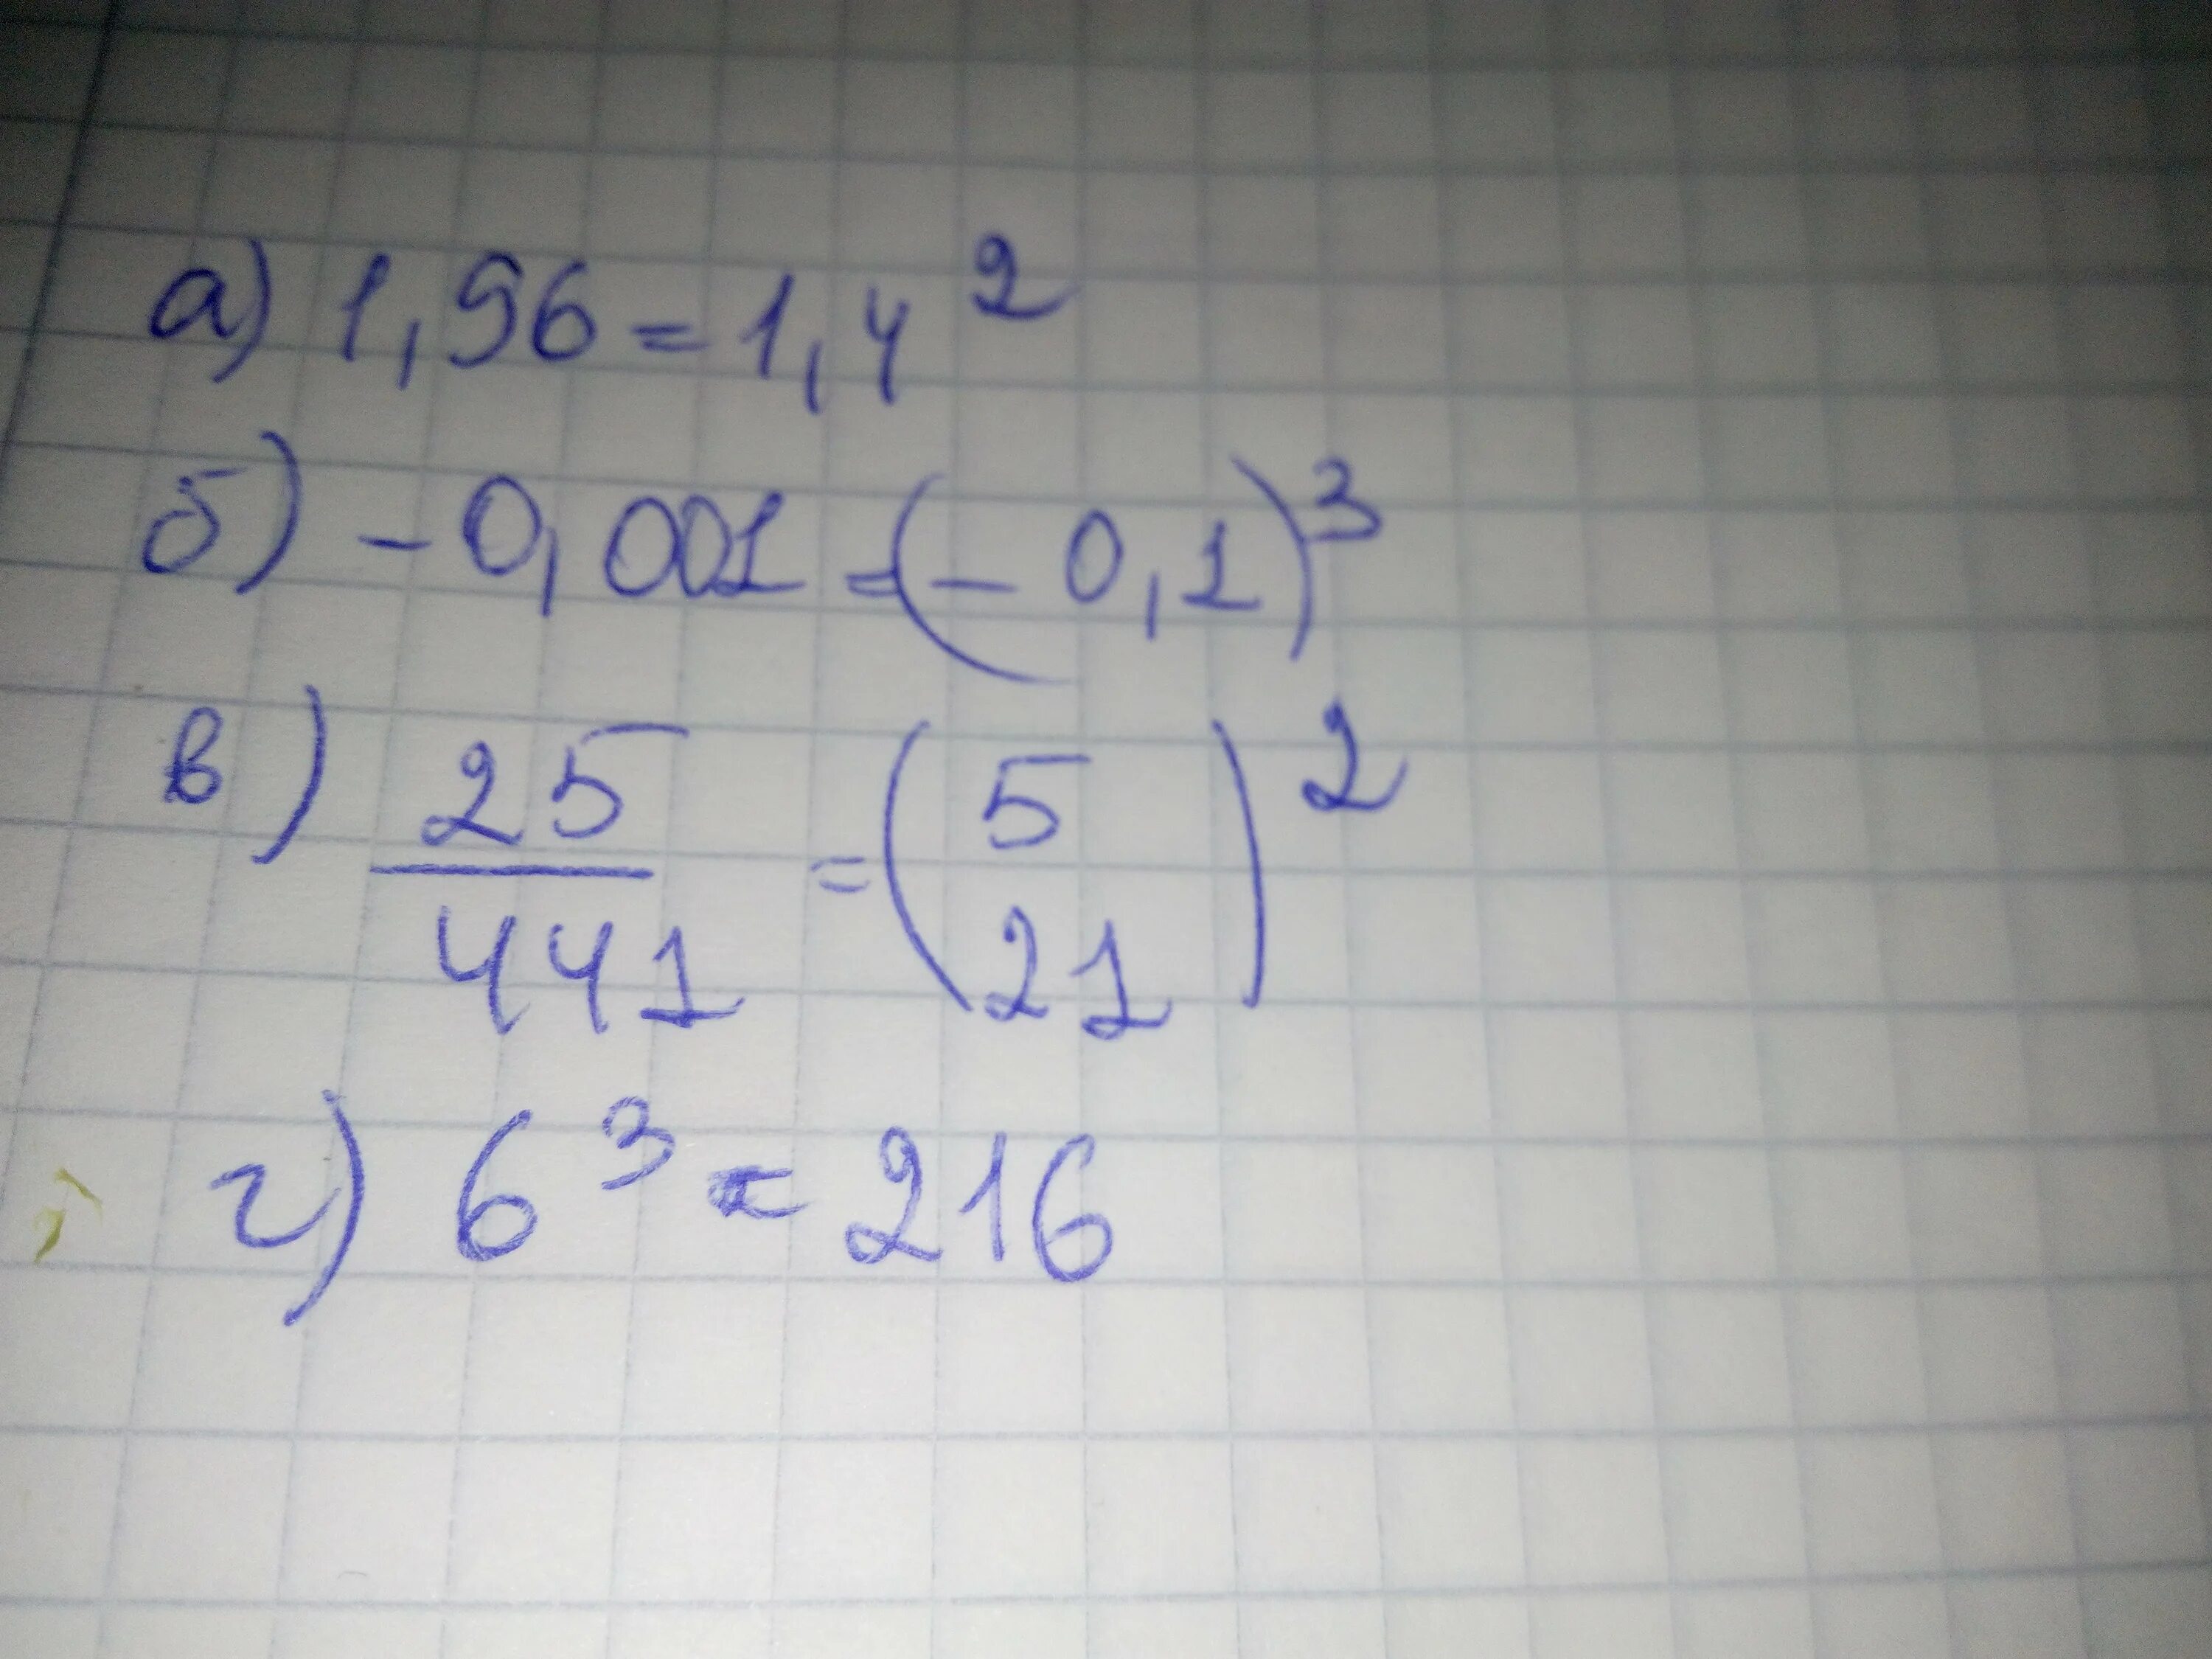 а) 1,96 = 1,4²
б) - 0,001 = (- 0,1)³
в) 25/441 = (5 21)²
г) 6³ = 216